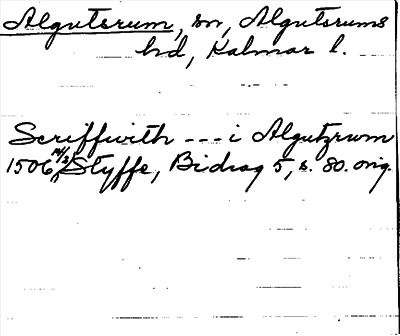 Algutsrum, sn, Algutsrums
hd, Kalmar l.
Scriffwith --- i Algutzrwm
1506 14/3, Styffe, Bidrag 5, s. 80. orig.